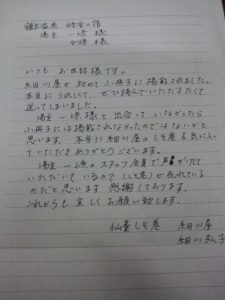 鎌先温泉 時音の宿
湯主 一條 様
女将 様
いつも お世話様です。
細川屋が初めて小冊子に掲載されました。
本当にうれしくて、ぜひ読んでいただきたくて
送ってしまいました。
湯主一條様と出会って いなかったら
小冊子には掲載されなかったのではないかと
思います。本当に細川屋のしそ巻を気に入っ
ていただきありがとうございます。
湯主一條のスタッフ全員で声がけして
いただいているので(しそ巻)が売れている
のだと思います 感謝しております。
これからも 宜しくお願い致します。
仙台しそ巻 細川屋
細川弘子